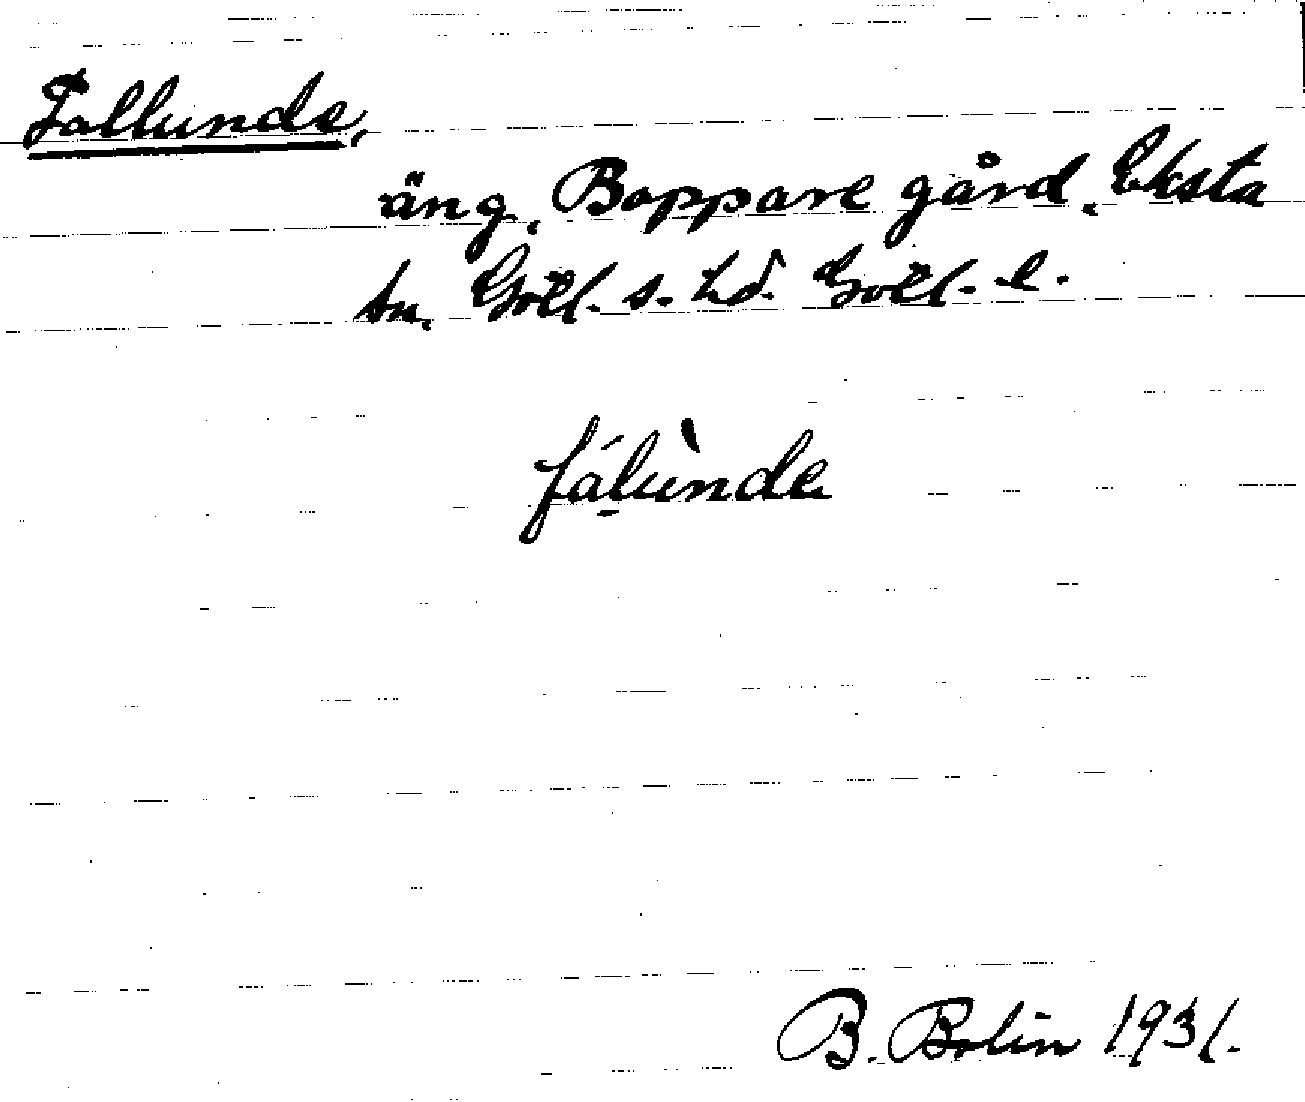 Fallunde,
äng, Boppare gård, Eksta
sn, Gotl. s. hd. Gotl. l.
fálùnde
B. Bolin 1931.